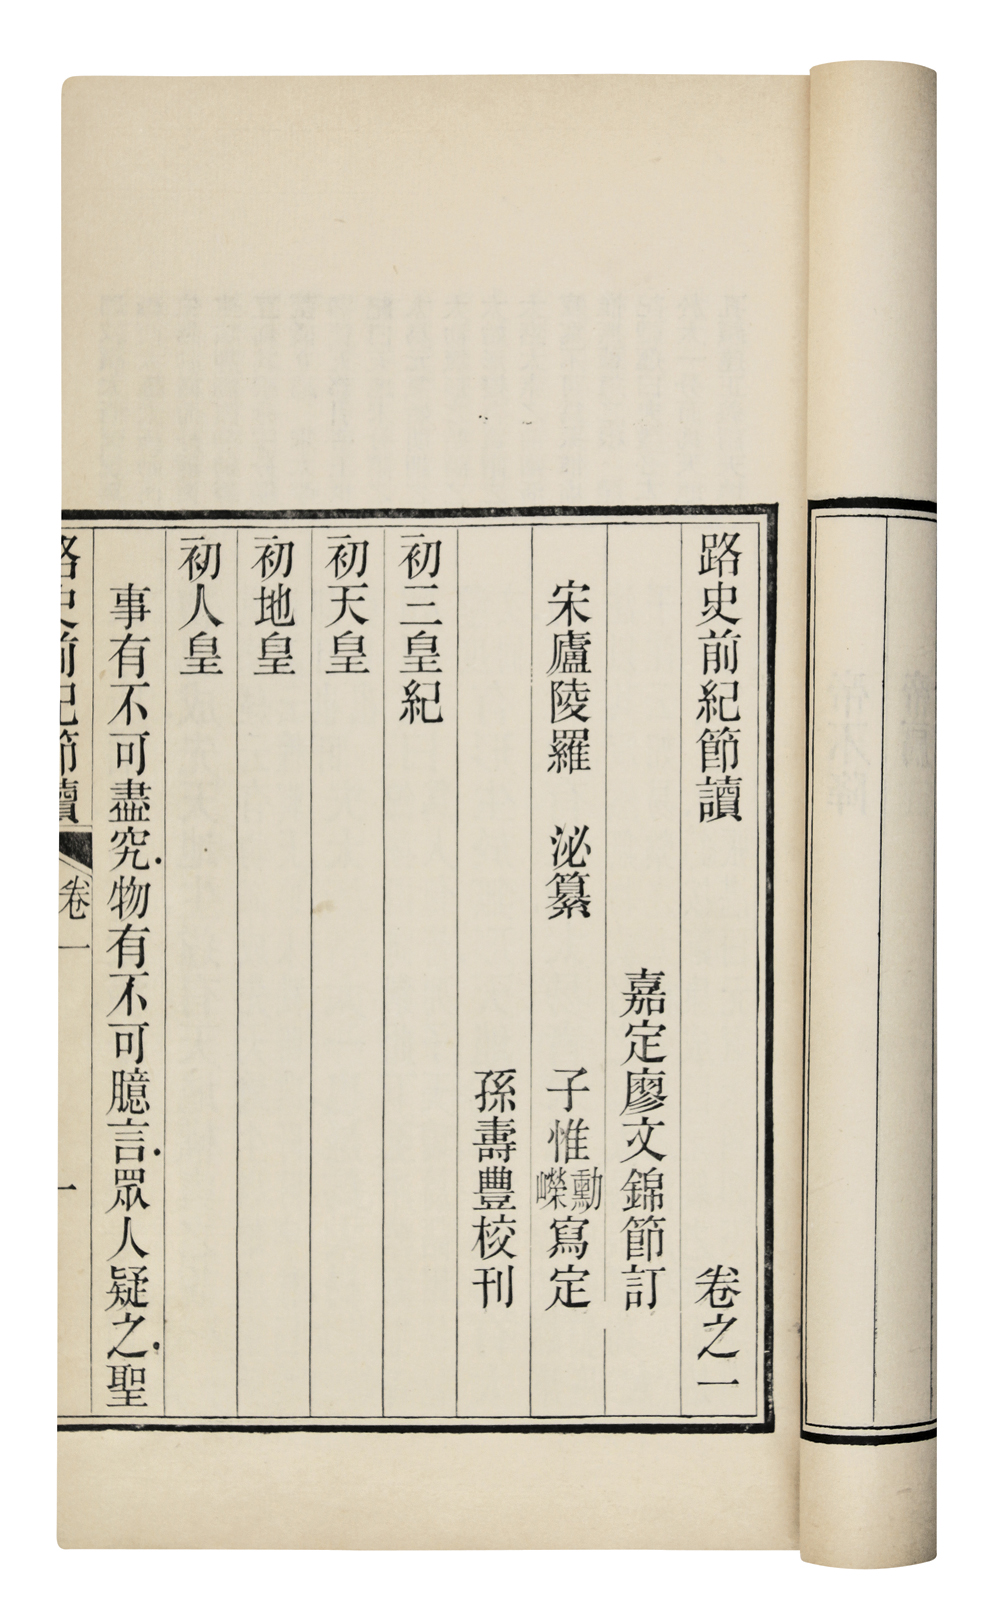 路史前紀節讀 卷之一
嘉定廖文錦節訂
宋廬陵羅 泌纂 子惟勳嶸寫定
孫壽豐校刊
初三皇紀
初天皇
初地皇
初人皇
事有不可盡究物有不可臆言眾人疑之聖
路史前紀節讀 卷一 一